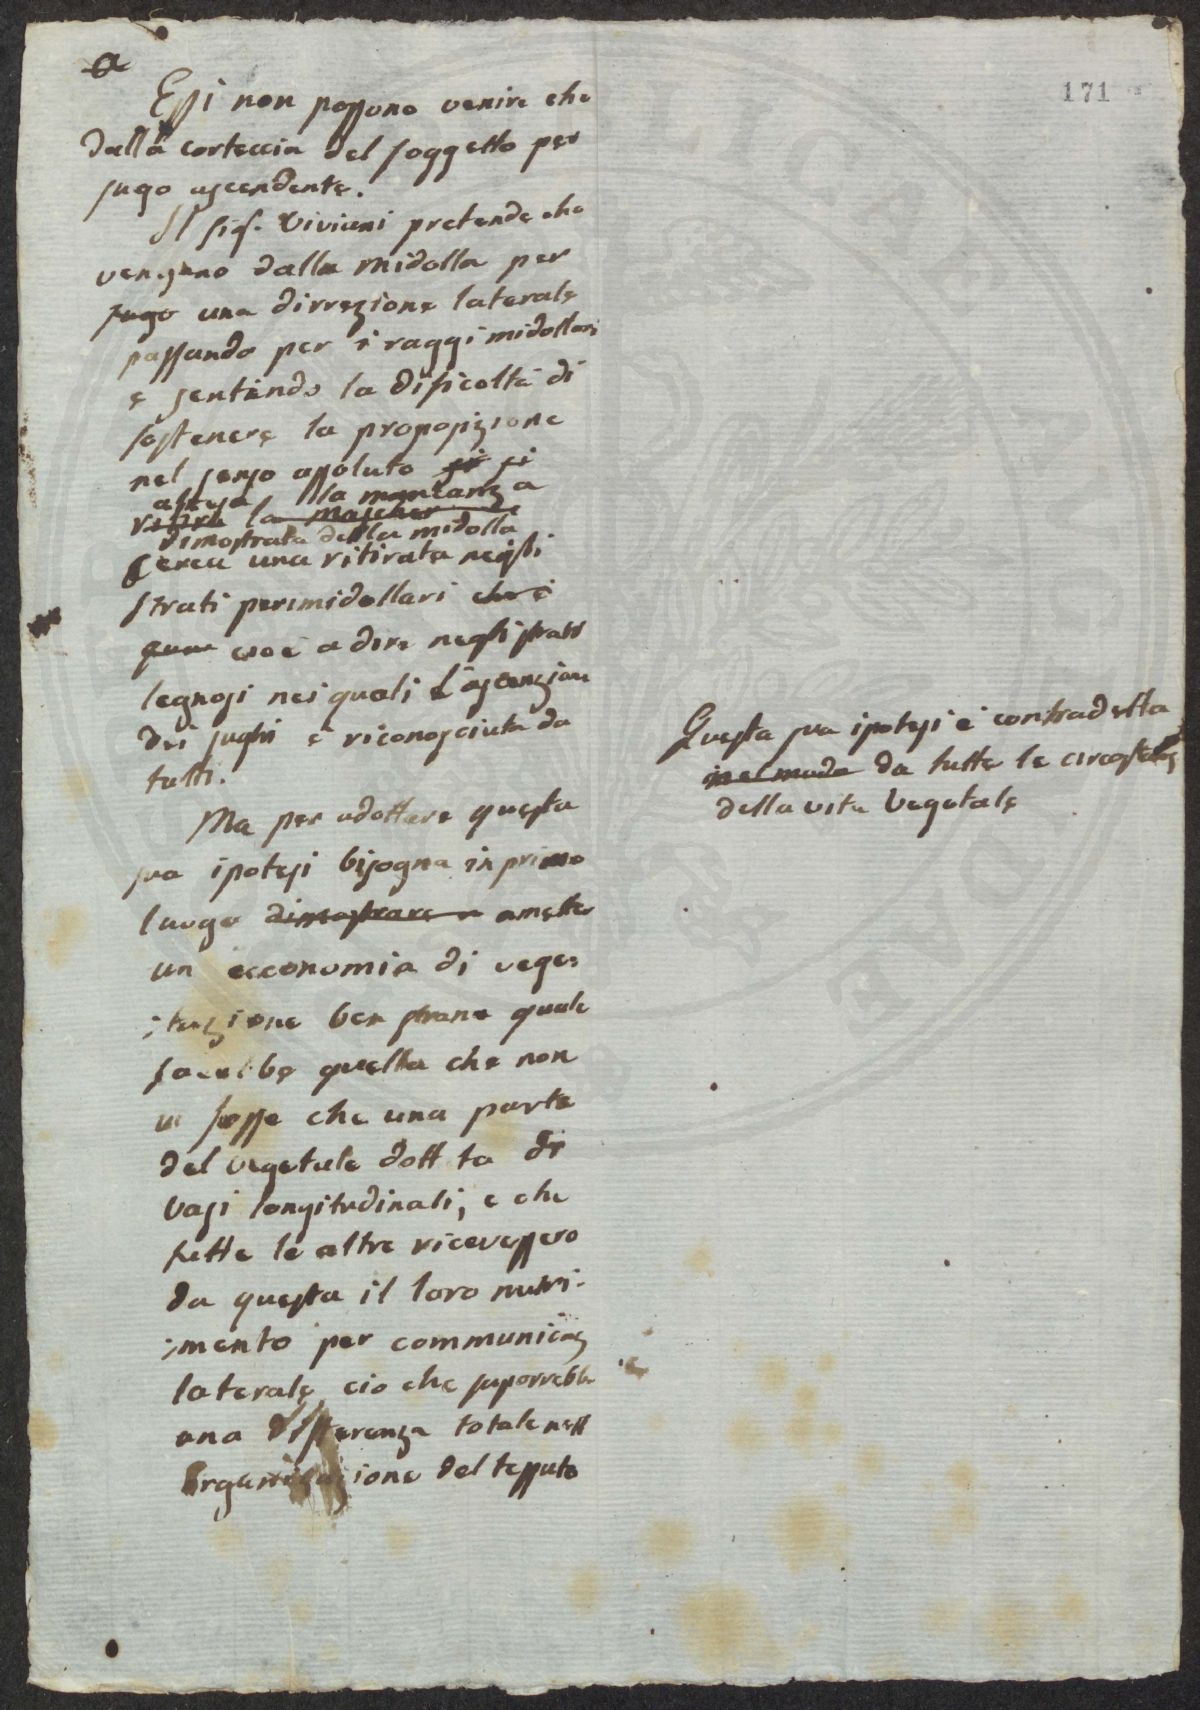 a
171
Essi non possono venire che
dalla corteccia del soggetto per
sugo ascendente.
Il sig. Viviani pretende che
vengano dalla midolla per
sugo una dirrezione laterale
passando per i raggi midollari
e sentendo la dificoltà di
sostenere la proposizione
nel senso assoluto si si
attesa la mancanza
la
dimostrata della midolla
cerca una ritirata negli
strati perimidollari che è
cioè a dire negli strati
legnosi nei quali l'ascenzione
dei sughi è riconosciuta da
tutti.
Ma per adottare questa
sua ipotesi bisogna in primo
luogo dimostrare amette
un economia di vege=
=tazione ben strana quale
sarebbe quella che non
vi fosse che una parte
del vegetale dottata di
vasi longitudinali, e che
tutte le altre ricevessero
da questa il loro nutri=
=mento per communicaz
laterale cio che suporrebbe
una differenza totale nell
organizazione del tessuto
Questa sua ipotesi è contradetta
da tutte le circostanze
della vita vegetale